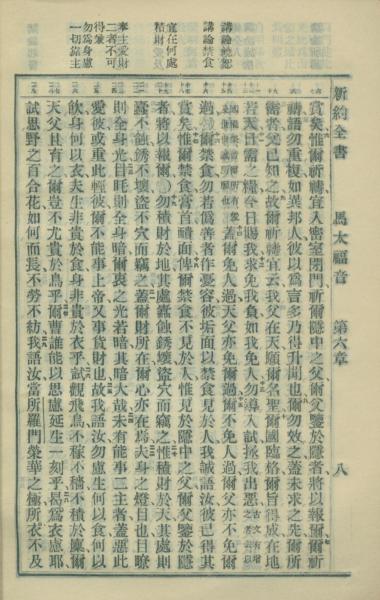 新約全書 馬太福音 第六章 八
講論饒恕
講論禁食
宜在何處
積財
事主愛財
二者不可
得兼
勿爲身慮
一切靠主
賞矣惟爾祈禱宜入密室閉門祈爾隱中之父爾父鑒於隱者將以報爾爾祈
禱語勿重複如異邦人彼以爲言多乃得升聞也爾勿效之蓋未求之先爾所
需者父已知之故爾祈禱宜云我父在天願爾名聖爾國臨格爾旨得成在地
若天日需之糧今日賜我求免我負如我免人勿導入試拯我出惡
蓋爾免人過天父亦免爾過爾不免人過爾父亦不免爾
過爾禁食勿若僞善者作憂容彼垢面以禁食見於人我誠語汝彼已得其
賞矣惟爾禁食膏首頮面俾爾禁食不見於人惟見於隱中之父爾父鑒於隱
者將以報爾勿積財於地其處蠹蝕銹壞盜穴而竊之惟積財於天其處則
蠹不蝕銹不壞盜不穴而竊之蓋爾財所在爾心亦在焉夫身之燈目也目瞭
則全身光目眊則全身暗爾衷之光若暗其暗大哉未有能事二主者蓋惡此
愛彼或重此輕彼爾不能事上帝又事貨財也故我語汝勿慮生何以食何以
飲身何以衣夫生非貴於食身非貴於衣乎試觀飛鳥不稼不穡不積於廩爾
天父且育之爾豈不尤貴於鳥乎爾曹誰能以思慮延生一刻乎曷爲衣慮耶
試思野之百合花如何而長不勞不紡我語汝當所羅門榮華之極所衣不及